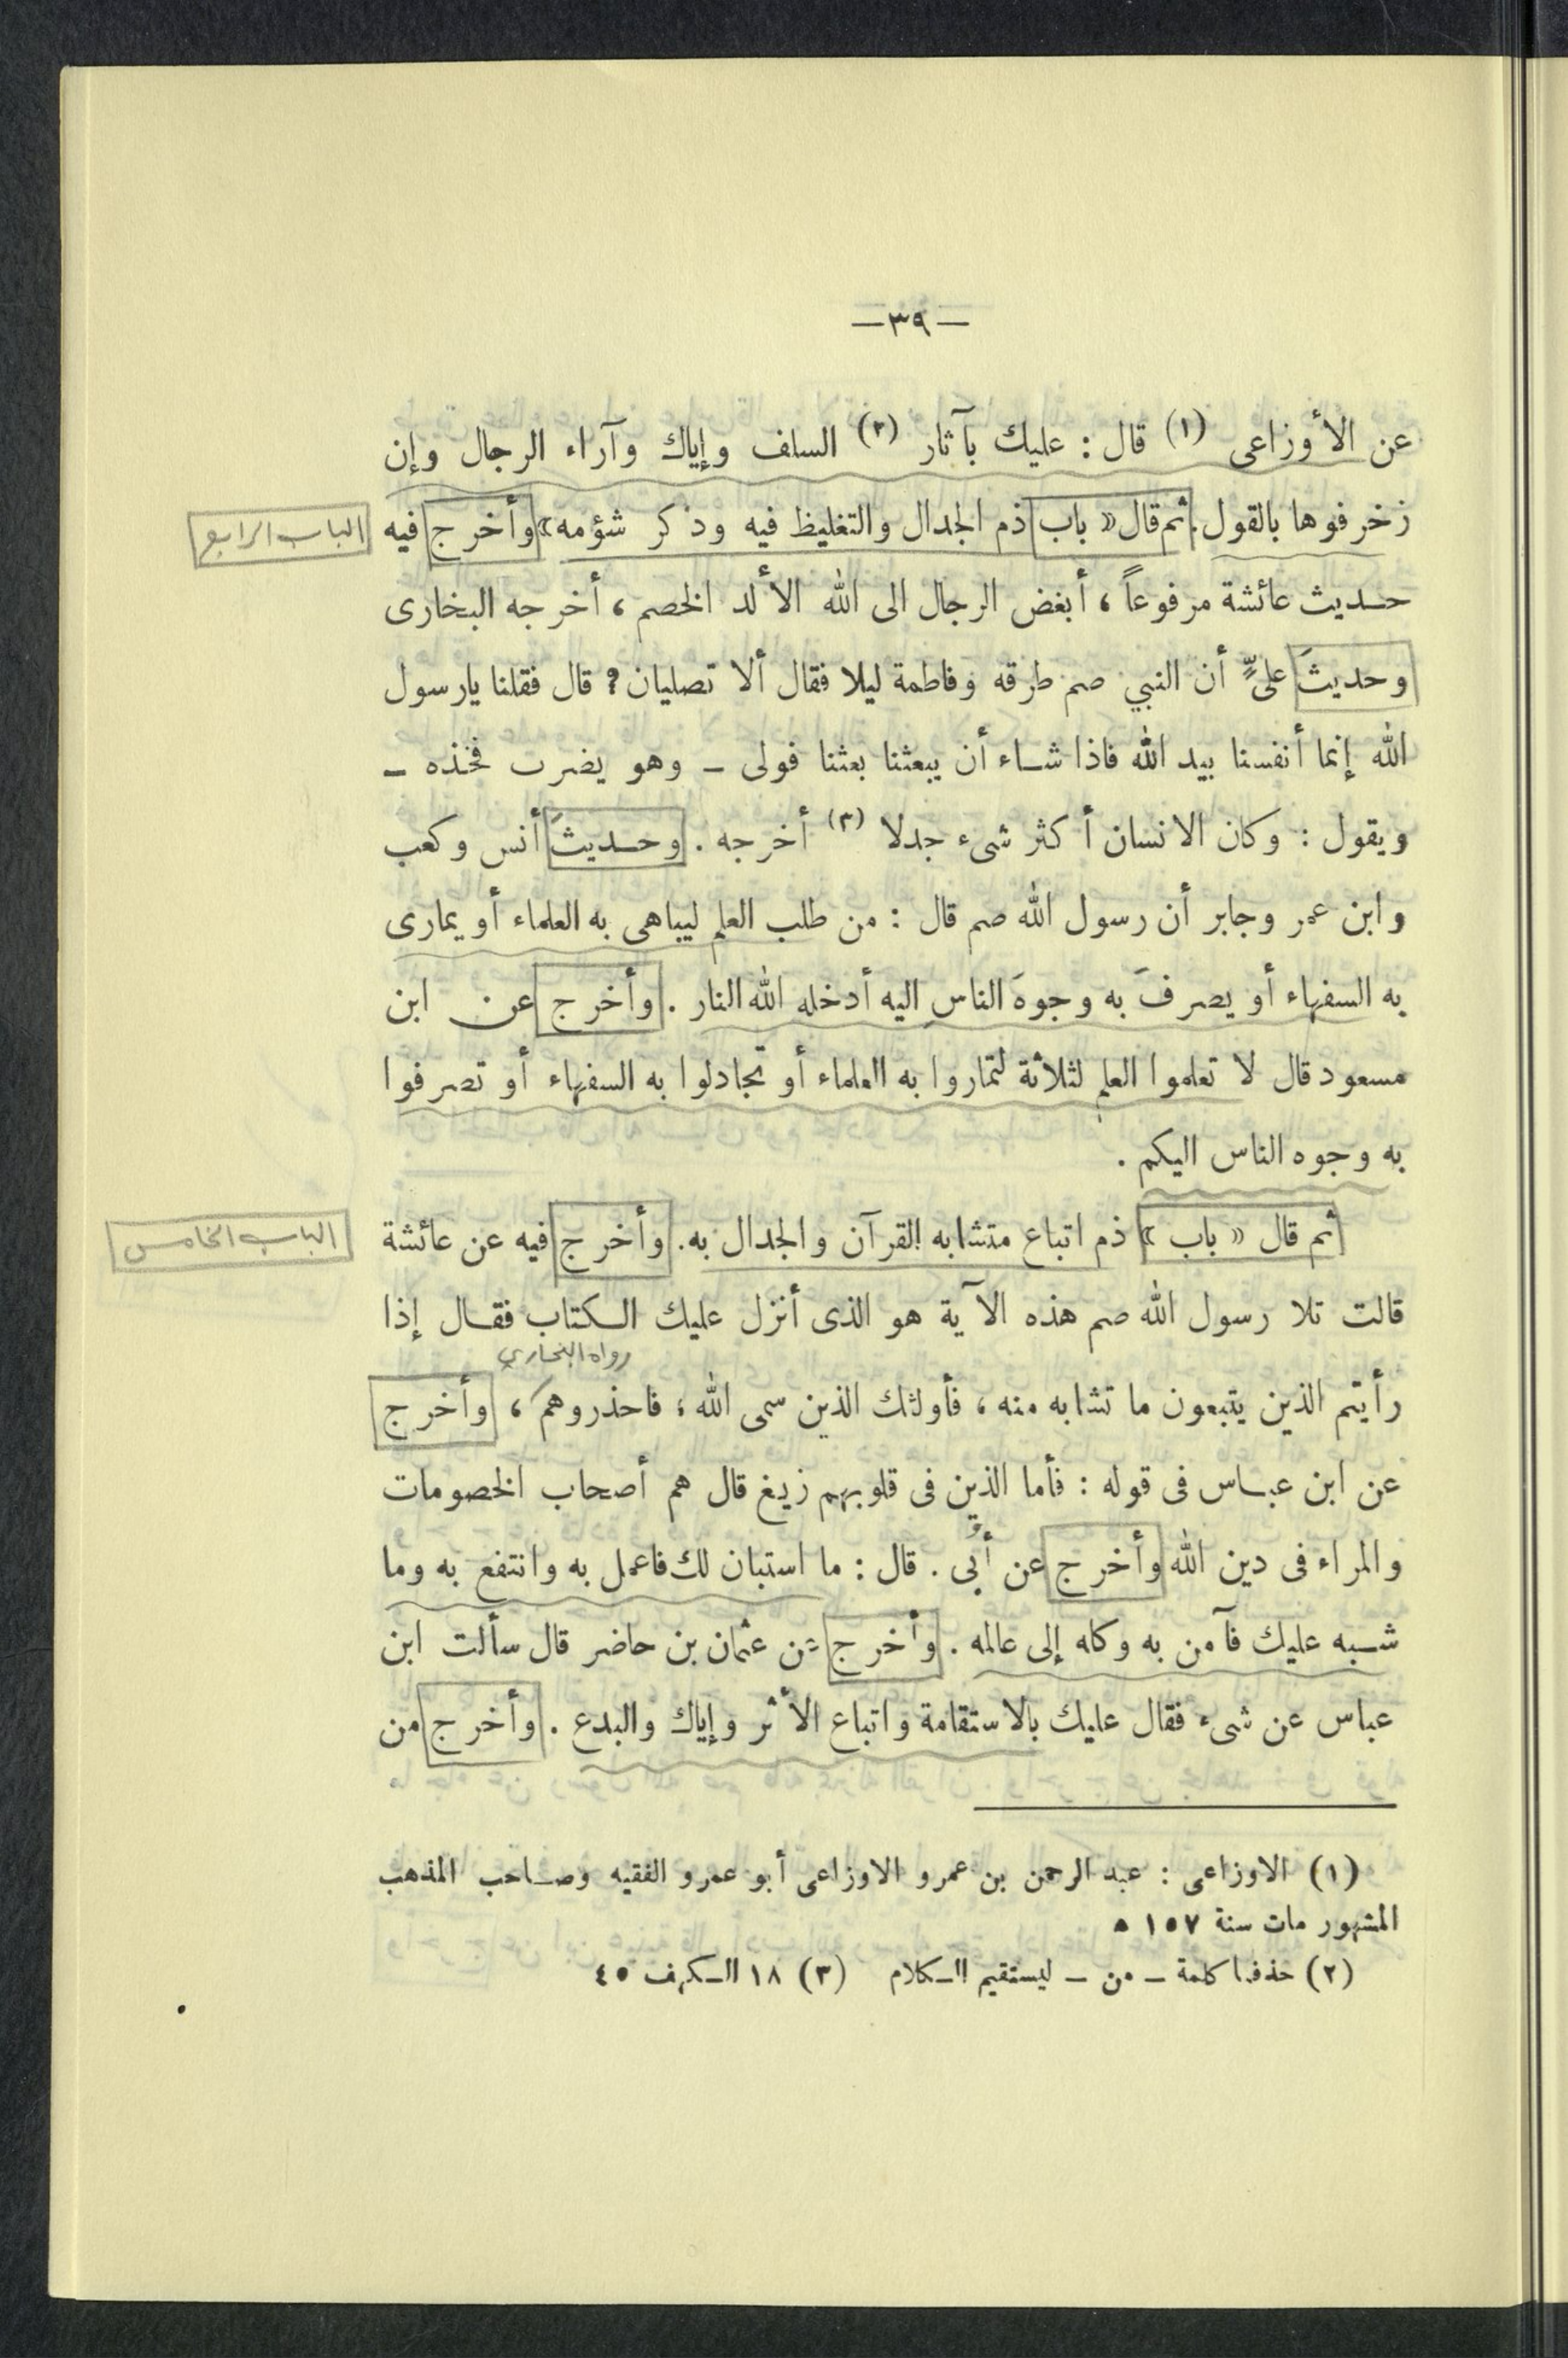 —٣٩—
عن الأوزاعى (١) قال : عليك بآثار (٢) السلف وإياك وآراء الرجال وإن
زخرفوها بالقول . ثم قال « باب ذم الجدال والتغليظ فيه وذكر شؤمه » وأخرج فيه
الباب الرابع
حديث عائشة مرفوعاً ، أبغض الرجال الى الله الألد الخصم ، أخرجه البخارى
وحديثَ علىٍّ أن النبي صم طرقه وفاطمة ليلا فقال ألا تصليان ؟ قال فقلنا يارسول
الله إنما أنفسنا بيد الله فاذا شاء أن يبعثنا بعثنا فولى – وهو يضرب فخذه –
ويقول : وكان الانسان أكثر شىء جدلا (٣) أخرجه . وحديثَ أنس وكعب
وابن عمر وجابر أن رسول الله صم قال : من طلب العلم ليباهى به العلماء أو يمارى
به السفهاء أو يصرفَ به وجوهَ الناس اليه أدخله الله النار . وأخرج عن ابن
مسعود قال لا تعلموا العلم لثلاثة لتماروا به العلماء أو تجادلوا به السفهاء أو تصرفوا
به وجوه الناس اليكم .
ثم قال « باب » ذم اتباع متشابه القرآن والجدال به . وأخرج فيه عن عائشة
الباب الخامس
قالت تلا رسول الله صم هذه الآية هو الذى أنزل عليك الكتاب فقال إذا
رواه البخاري
رأيتم الذين يتبعون ما تشابه منه ، فأولئك الذين سمى الله ؛ فاحذروهم ، وأخرج
عن ابن عباس فى قوله : فأما الذين فى قلوبهم زيغ قال هم أصحاب الخصومات
والمراء فى دين الله وأخرج عن أُبى . قال : ما استبان لك فاعمل به وانتفع به وما
شبه عليك فآمن به وكله إلى عالمه . وأخرج عن عثمان بن حاضر قال سألت ابن
عباس عن شىء فقال عليك بالاستقامة واتباع الأثر وإياك والبدع . وأخرج من
(١) الاوزاعى : عبد الرحمن بن عمرو الاوزاعى أبو عمرو الفقيه وصاحب المذهب
المشهور مات سنة ١٥٧ ه
(٢) حذفنا كلمة – من – ليستقيم الكلام (٣) ١٨ الكهف ٤٥